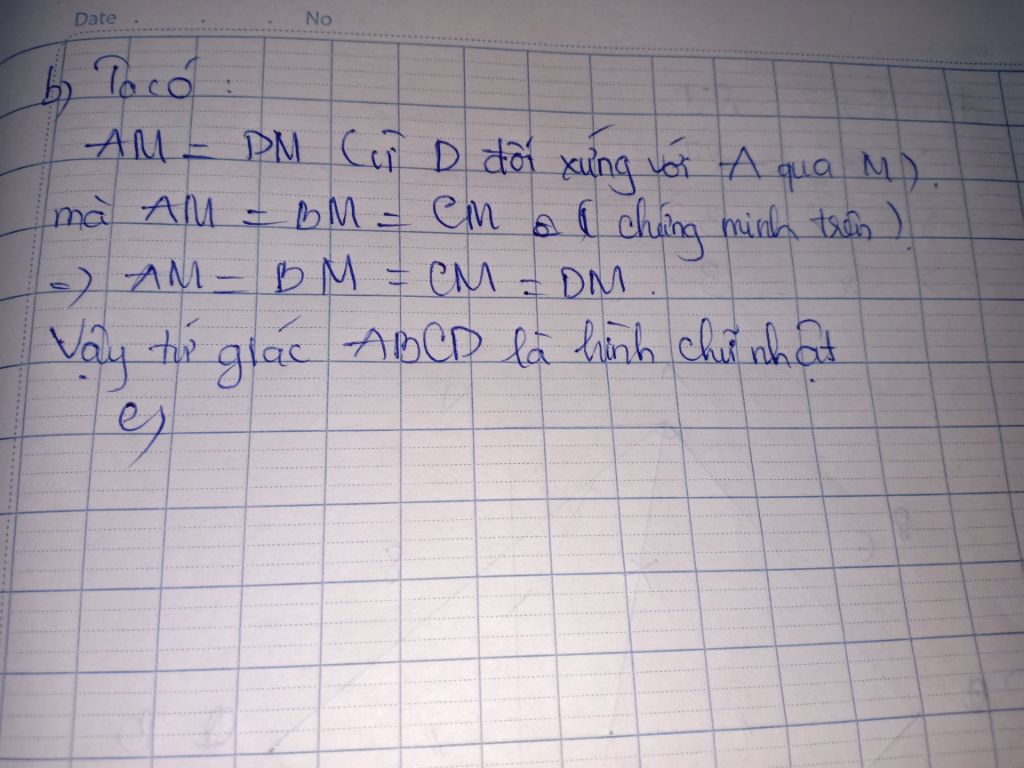 Date . . . . No
b) Ta có :
AM = DM (vì D đối xứng với A qua M).
mà AM = BM = CM ( chứng minh trên ).
=) AM = BM = CM = DM .
Vậy tứ giác ABCD là hình chữ nhật
c)